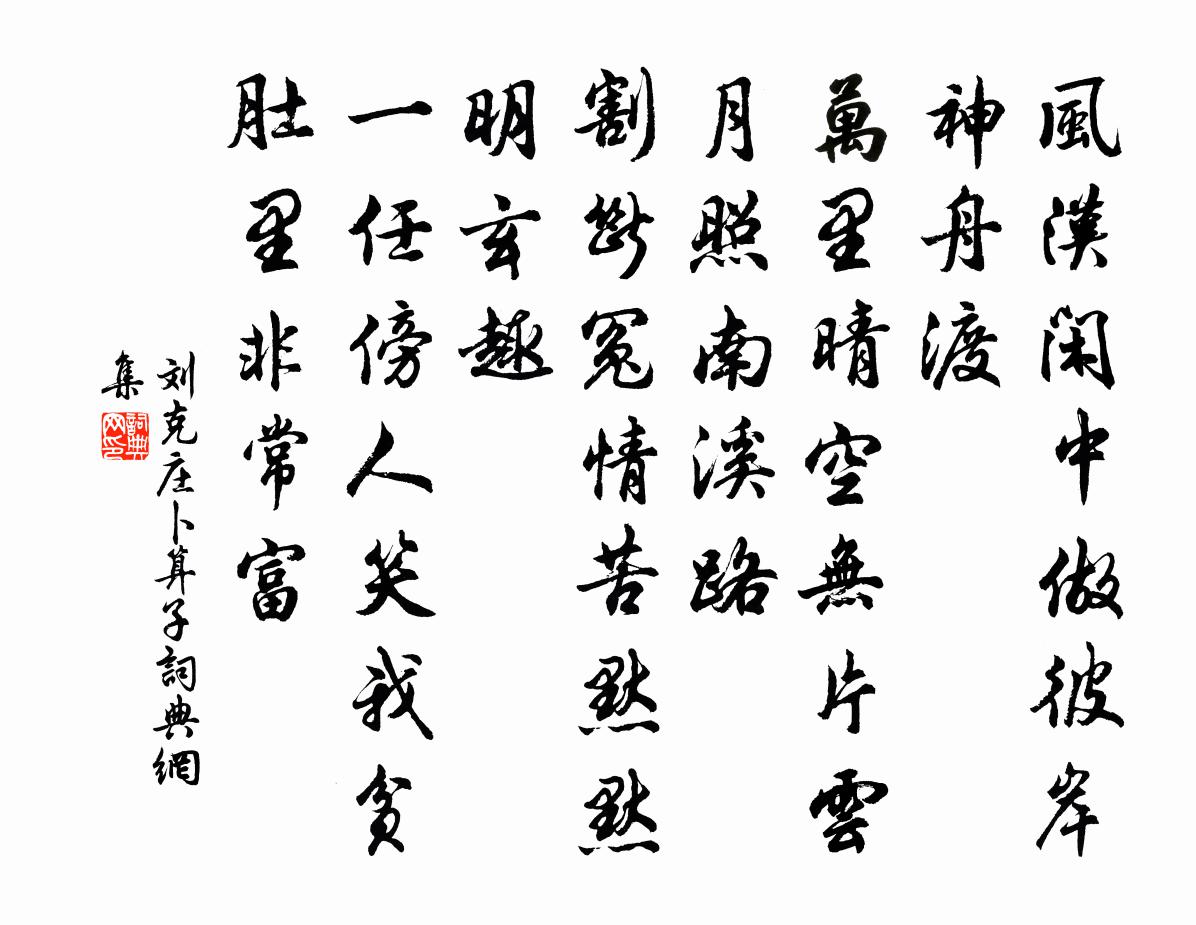 風漢閑中做彼岸
神舟渡
萬里晴空無片雲
月照南溪路
割斷冤情苦黙黙
明玄趣
一任傍人笑我貧
肚里非常富
刘克庄卜算子詞典網
集
詞典
网印